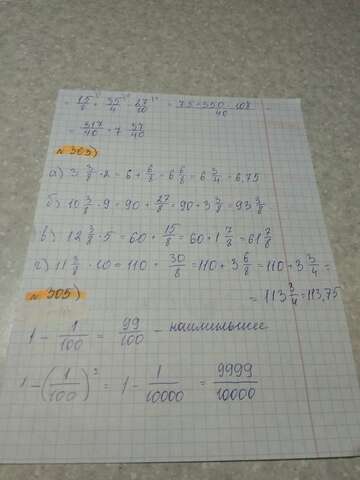 = 15/8 + 35/4 - 27/10 = 75+350-108/40 =
= 317/40 = 7 37/40
№ 303)
а) 3 3/8 · 2 = 6 + 6/8 = 6 6/8 = 6 3/4 = 6,75
б) 10 3/8 · 9 = 90 + 27/8 = 90 + 3 3/8 = 93 3/8
в) 12 3/8 · 5 = 60 + 15/8 = 60 + 1 7/8 = 61 7/8
г) 11 3/8 · 10 = 110 + 30/8 = 110 + 3 6/8 = 110 + 3 3/4 =
= 113 3/4 = 113,75
№ 305)
1 - 1/100 = 99/100 - наименьшее
1 - (1/100)² = 1 - 1/10000 = 9999/10000